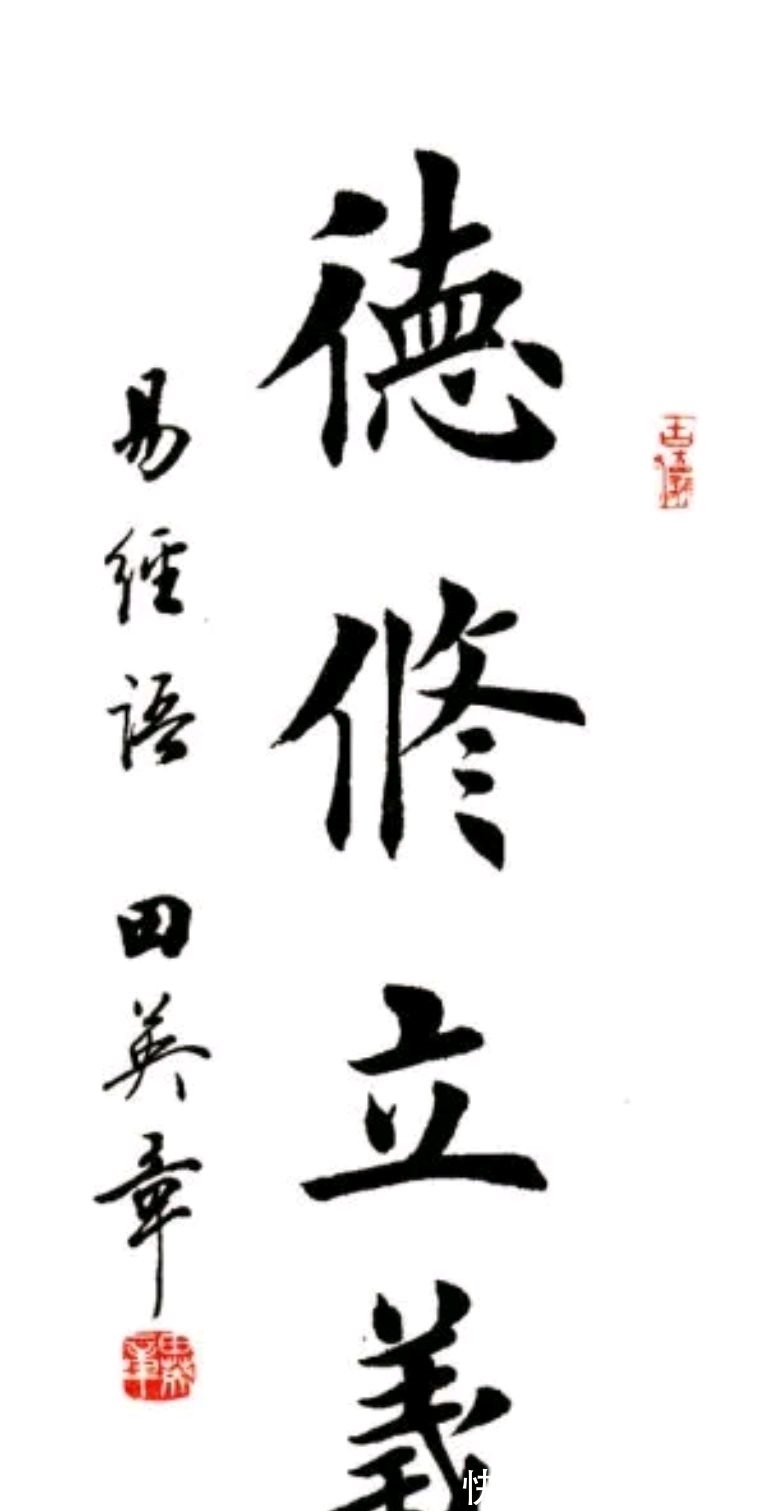 德修立義
易經語 田英章
快